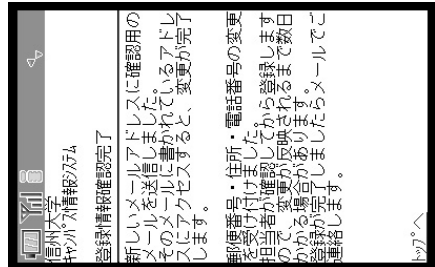 信州大学
ｷｬﾝﾊﾟｽ情報ｼｽﾃﾑ
登録情報確認完了
新しいメールアドレスに確認用の
メールを送信しました。
そのメールに書かれているアドレ
スにアクセスすると、変更が完了
します。
郵便番号・住所・電話番号の変更
を受け付けました。
担当者が確認してから登録します
ので、変更が反映されるまで数日
かかる場合があります。
登録が完了しましたらメールでご
連絡します。
ﾄｯﾌﾟへ